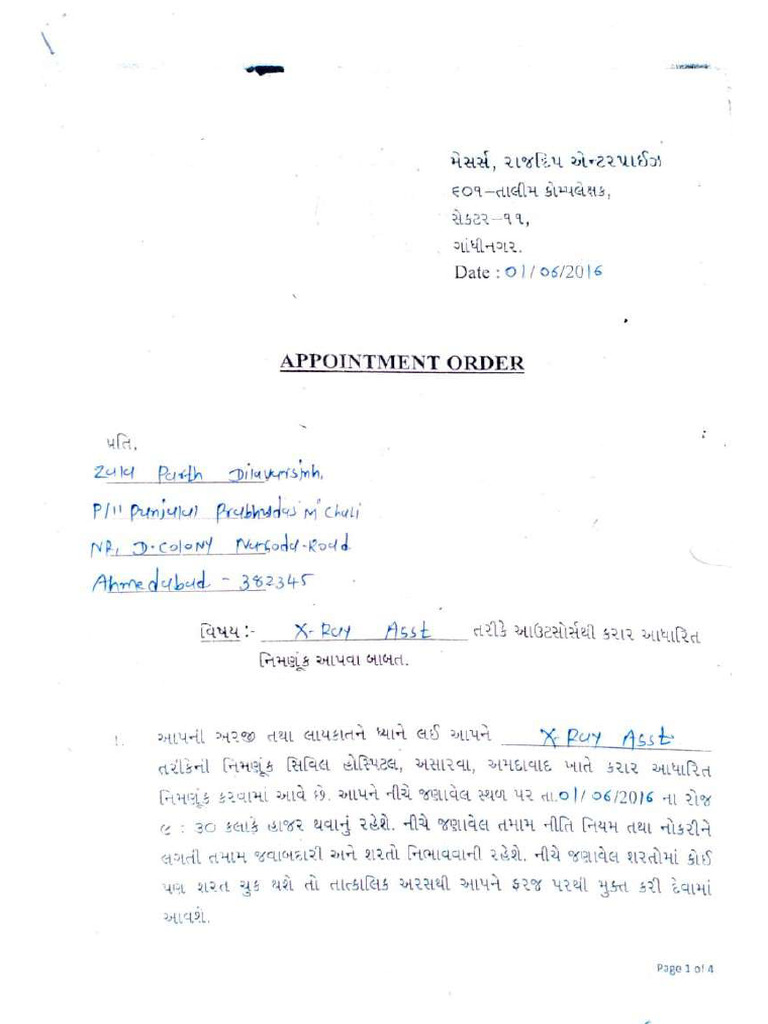 મેસર્સ, રાજદિપ એન્ટરપાઈઝ
૬૦૧–તાલીમ કોમ્પલેક્ષક,
સેકટર–૧૧,
ગાંધીનગર.
Date : 01/06/2016
APPOINTMENT ORDER
પ્રતિ,
Zala Parth Dilavarsinh,
P/11 Punjalal Prabhudas M' Chali
NR, D-COLONY Naroda-Road
Ahmedabad - 382345
વિષય :- X-Ray Asst તરીકે આઉટસોર્સથી કરાર આધારિત
નિમણૂંક આપવા બાબત.
1. આપની અરજી તથા લાયકાતને ધ્યાને લઈ આપને X-Ray Asst
તરીકેની નિમણૂંક સિવિલ હોસ્પિટલ, અસારવા, અમદાવાદ ખાતે કરાર આધારિત
નિમણૂંક કરવામાં આવે છે. આપને નીચે જણાવેલ સ્થળ પર તા.01/06/2016 ના રોજ
૯ : ૩૦ કલાકે હાજર થવાનું રહેશે. નીચે જણાવેલ તમામ નીતિ નિયમ તથા નોકરીને
લગતી તમામ જવાબદારી અને શરતો નિભાવવાની રહેશે. નીચે જણાવેલ શરતોમાં કોઈ
પણ શરત ચુક થશે તો તાત્કાલિક અસરથી આપને ફરજ પરથી મુક્ત કરી દેવામાં
આવશે.
Page 1 of 4